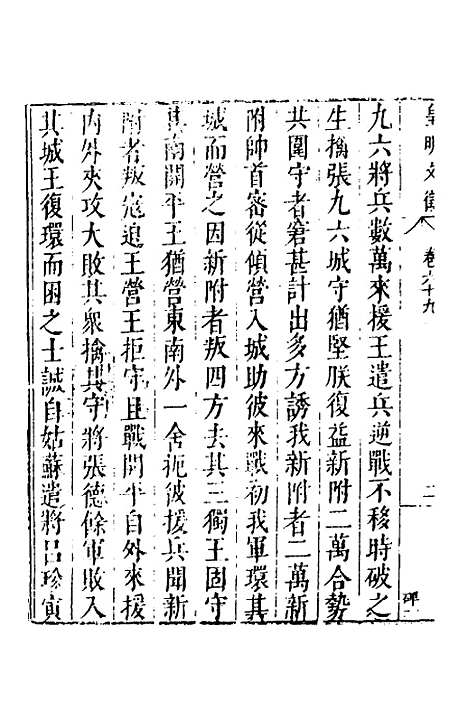 皇明文衡 卷六十九 二 碑
九六將兵數萬來援王遣兵逆戰不移時破之
生擒張九六城守猶堅朕復益新附二萬合勢
共圍守者窘甚計出多方誘我新附者二萬新
附帥首審從傾營入城助彼來戰初我軍環其
城而營之因新附者叛四方去其三獨王固守
其南開平王猶營東南外一舍扼彼援兵聞新
附者叛寇迫王營王拒守且戰開平自外來援
內外夾攻大敗其衆擒其守將張德餘軍敗入
其城王復環而困之士誠自姑蘇遣將呂珍寅